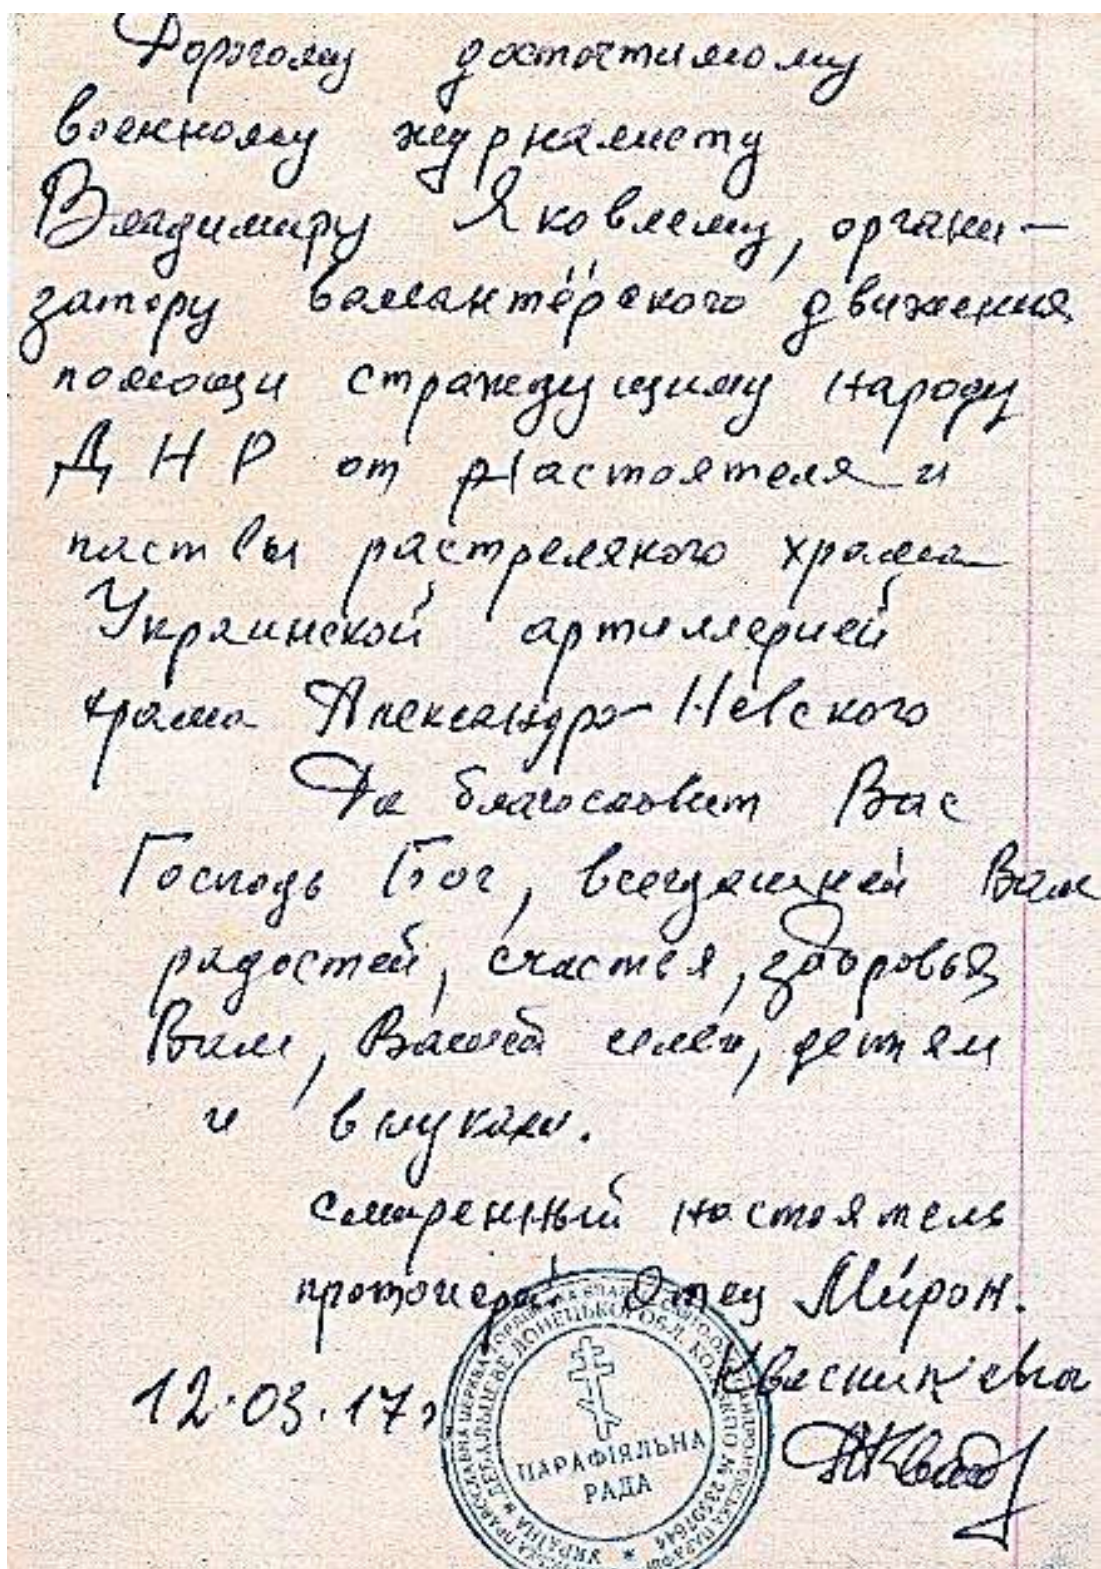 Дорогому досточтимому
военному журналисту
Владимиру Яковлему, органи-
затору валантёрского движения
помощи страждущиму народу
ДНР от настоятеля и
паствы растреляного храма
Украинской артиллерией
храма Александра Невского
Да благословит Вас
Господь Бог, всегдашней Вам
радостей, счастья, здоровья
Вам, Вашей семеи, детям
и внукам.
смиренный настоятель
протоиерей Отец Мирон.
12.03.17г
УКРАЇНА м. ДЕБАЛЬЦЕВЕ ДОНЕЦЬКОЇ ОБЛ.
ПАРАФІЯЛЬНА
РАДА